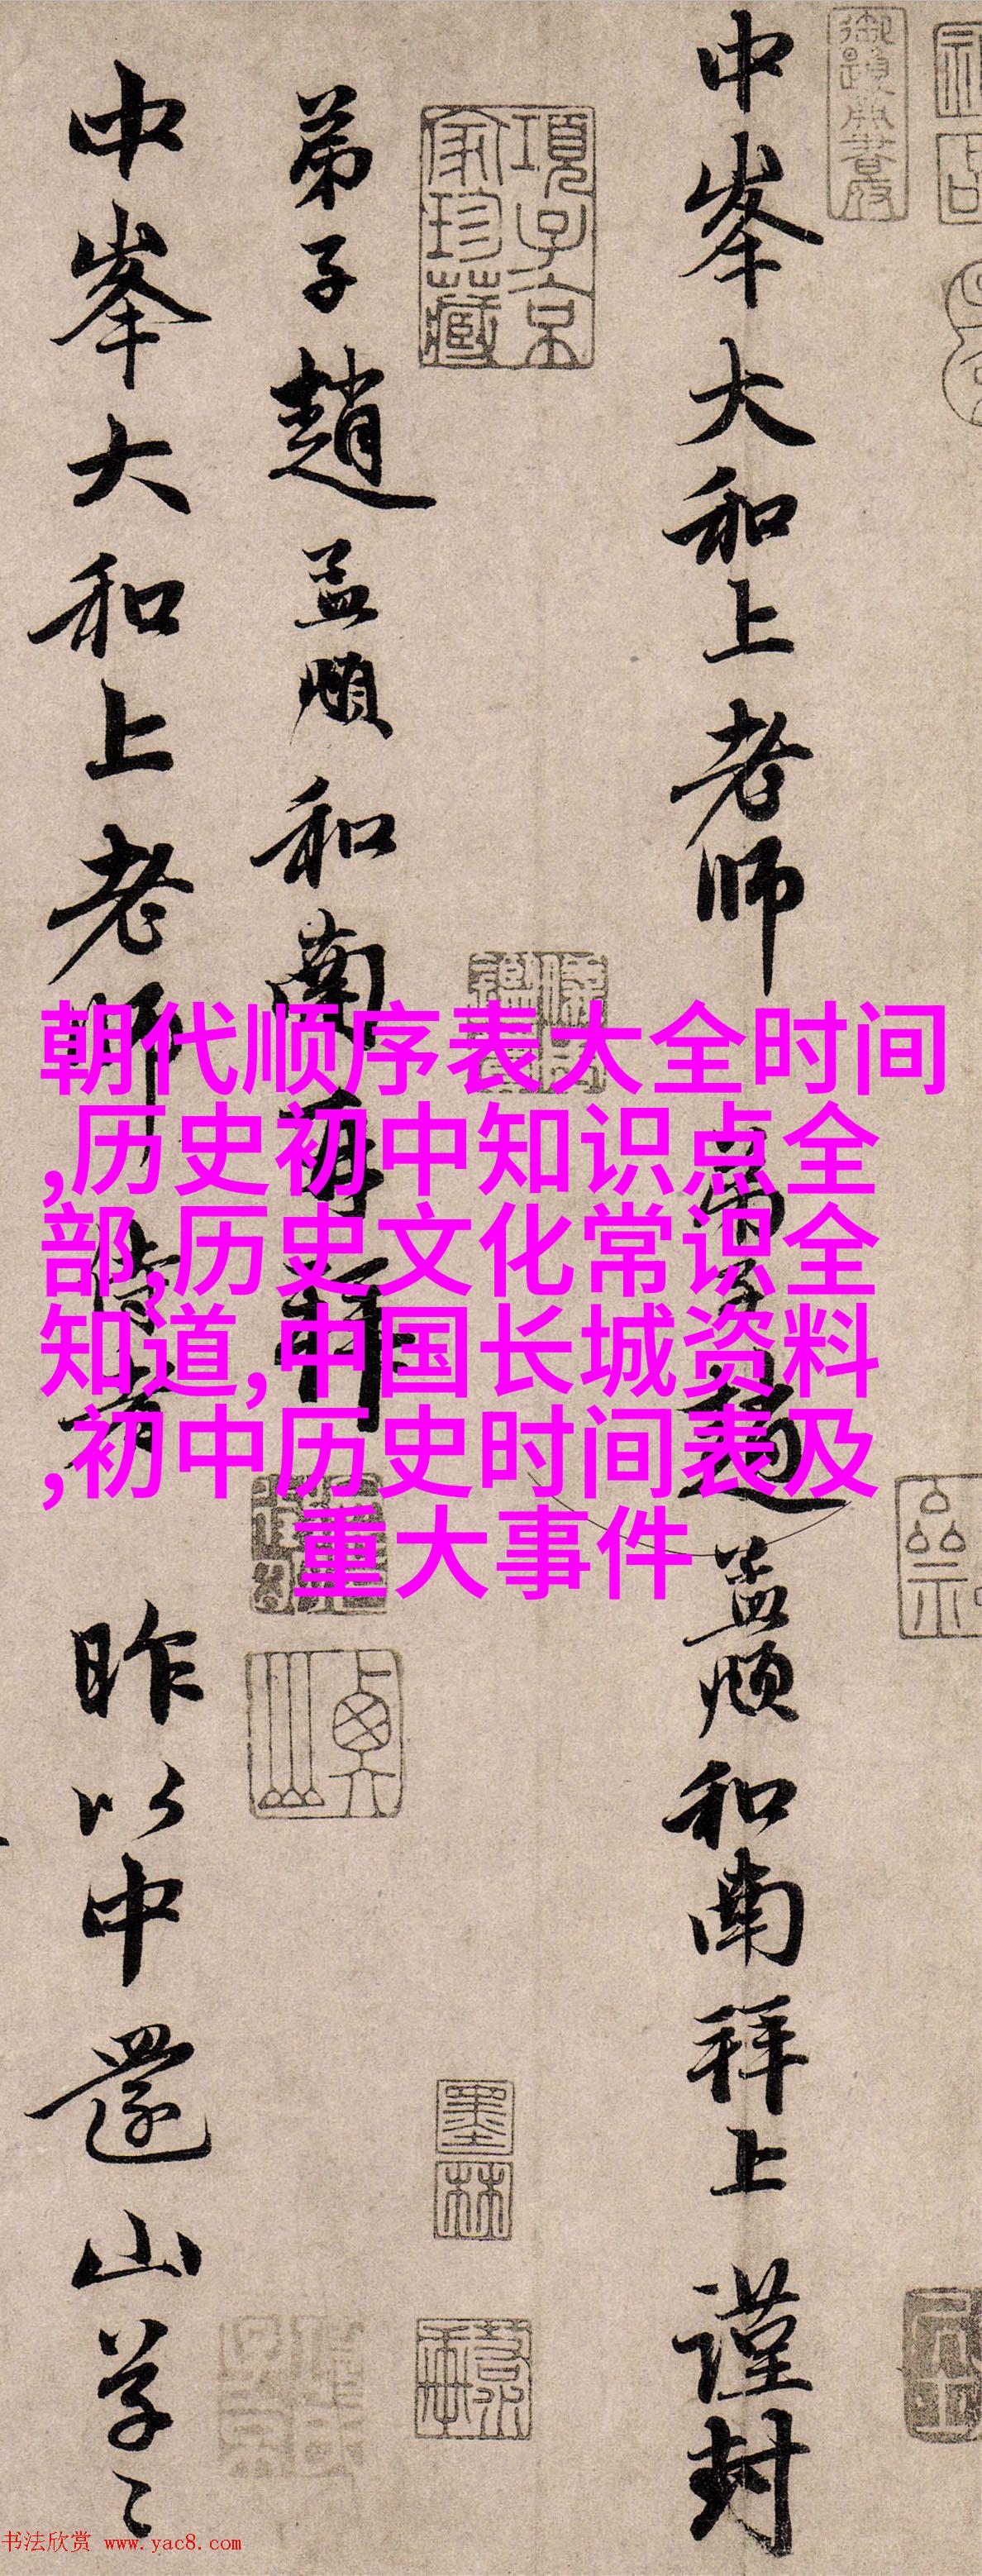 中峯大和上老师
弟子趙孟頫和南拜上 謹封
項子京
家珍藏
弟子趙孟頫和南再拜
中峯大和上老師侍者
昨以中還山草〻
墨
林
朝代顺序表大全时间
,历史初中知识点全
部,历史文化常识全
知道,中国长城资料
,初中历史时间表及
重大事件
书法欣赏 www.yac8.com